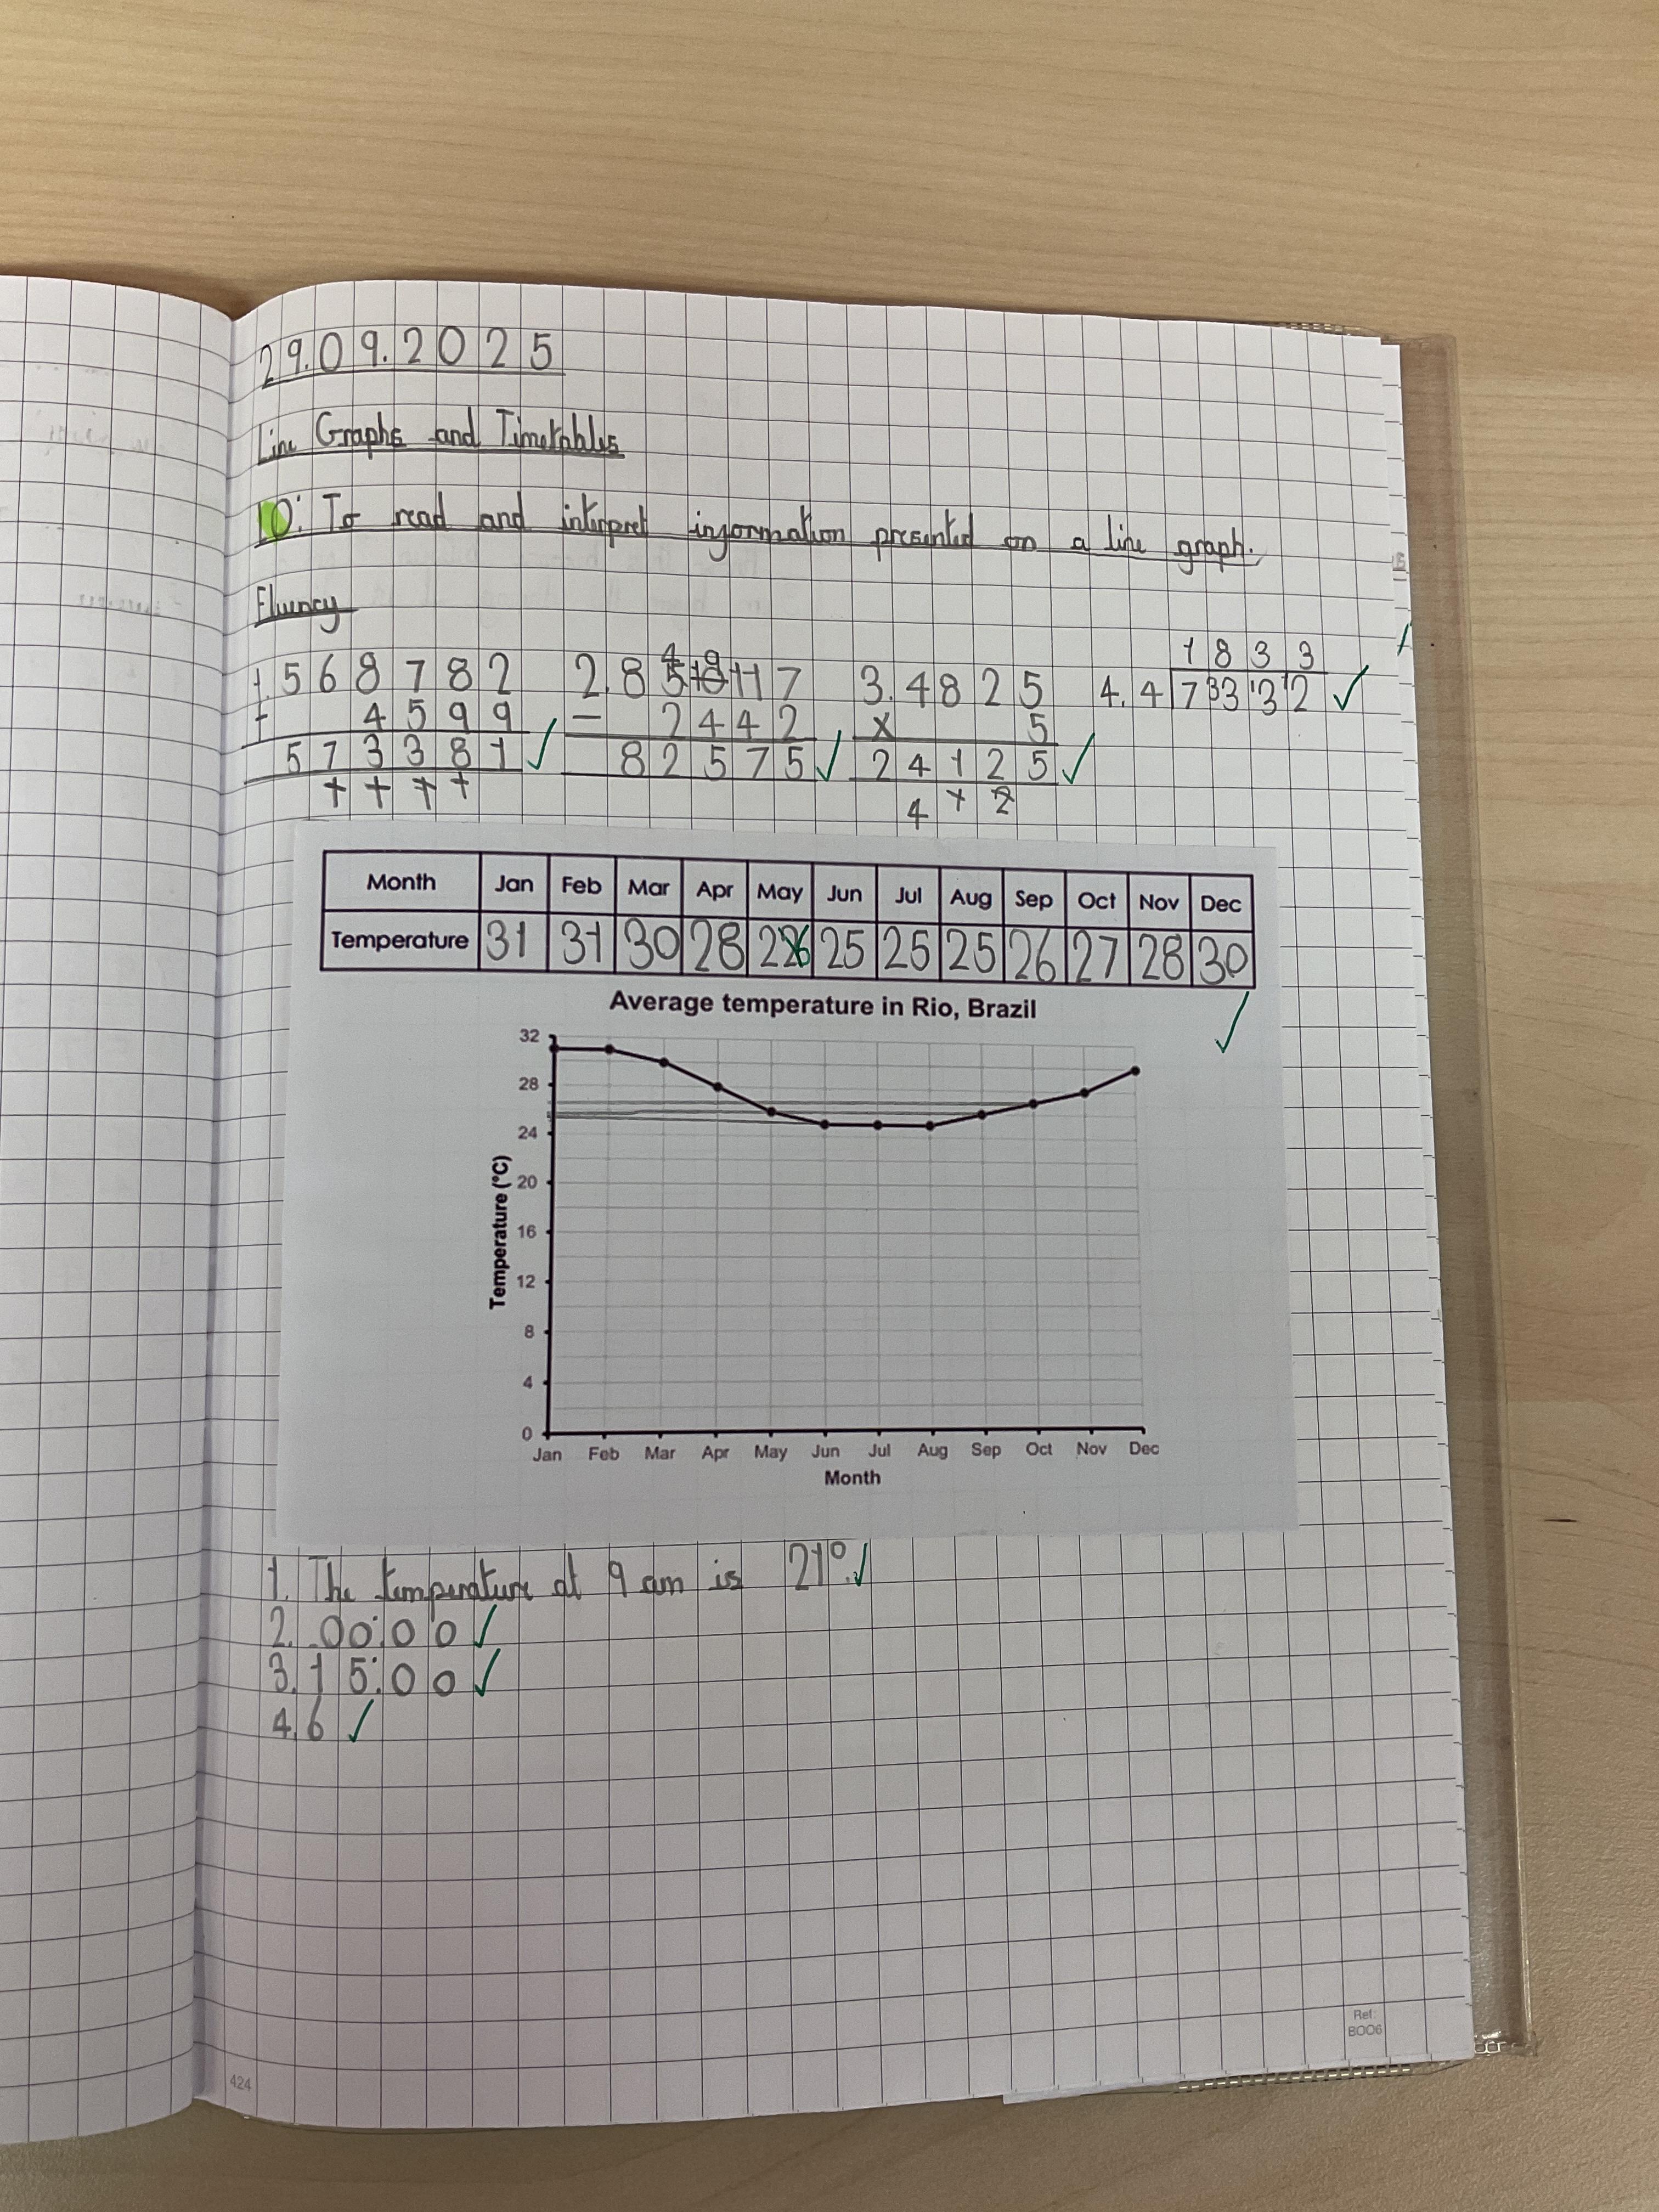 29.09.2025
Line Graphs and Timetables
LO: To read and interpret information presented on a line graph.
Fluency
1. 568782
+ 4599
573381
1 1 1 1
2. 85017
4 9 1
- 2442
82575
3. 4825
x 5
24125
4 1 2
4. 1833
4 7 33 13 12
Month Jan Feb Mar Apr May Jun Jul Aug Sep Oct Nov Dec
Temperature 31 31 30 28 26 25 25 25 26 27 28 30
Average temperature in Rio, Brazil
Temperature (°C)
32
28
24
20
16
12
8
4
0
Jan Feb Mar Apr May Jun Jul Aug Sep Oct Nov Dec
Month
1. The temperature at 9 am is 21°.
2. 00:00
3. 15:00
4. 6
Ref:
BOO6
424